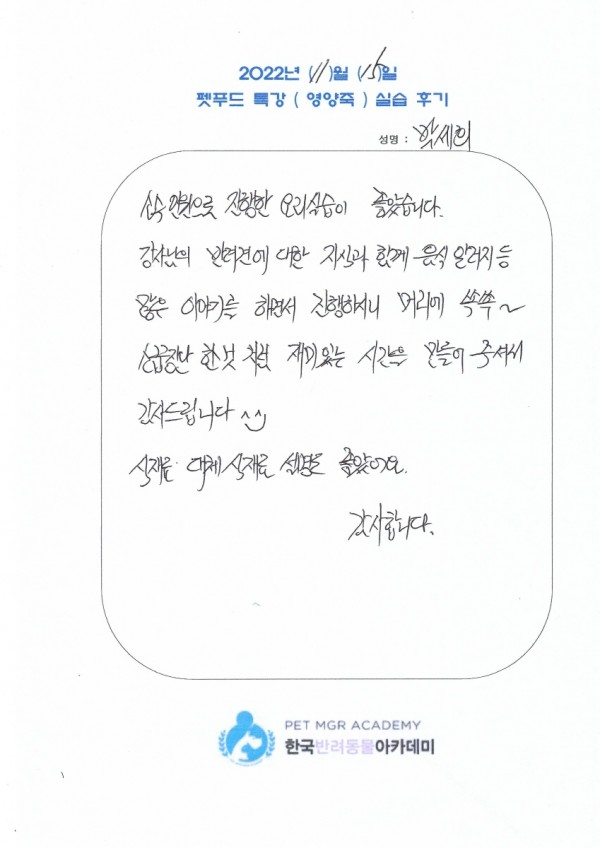 2022년 (11)월 (15)일
펫푸드 특강 ( 영양죽 ) 실습 후기
성명 : 박세희
소수 인원으로 진행한 요리실습이 좋았습니다.
강사님의 반려견에 대한 지식과 함께 음식 알러지 등
많은 이야기를 하면서 진행하시니 머리에 쏙쏙~
한 것 처럼 재미있는 시간을 만들어 주셔서
감사드립니다 ^^
식재료 대체 식재료 설명도 좋았어요.
감사합니다.
PET MGR ACADEMY
한국반려동물아카데미